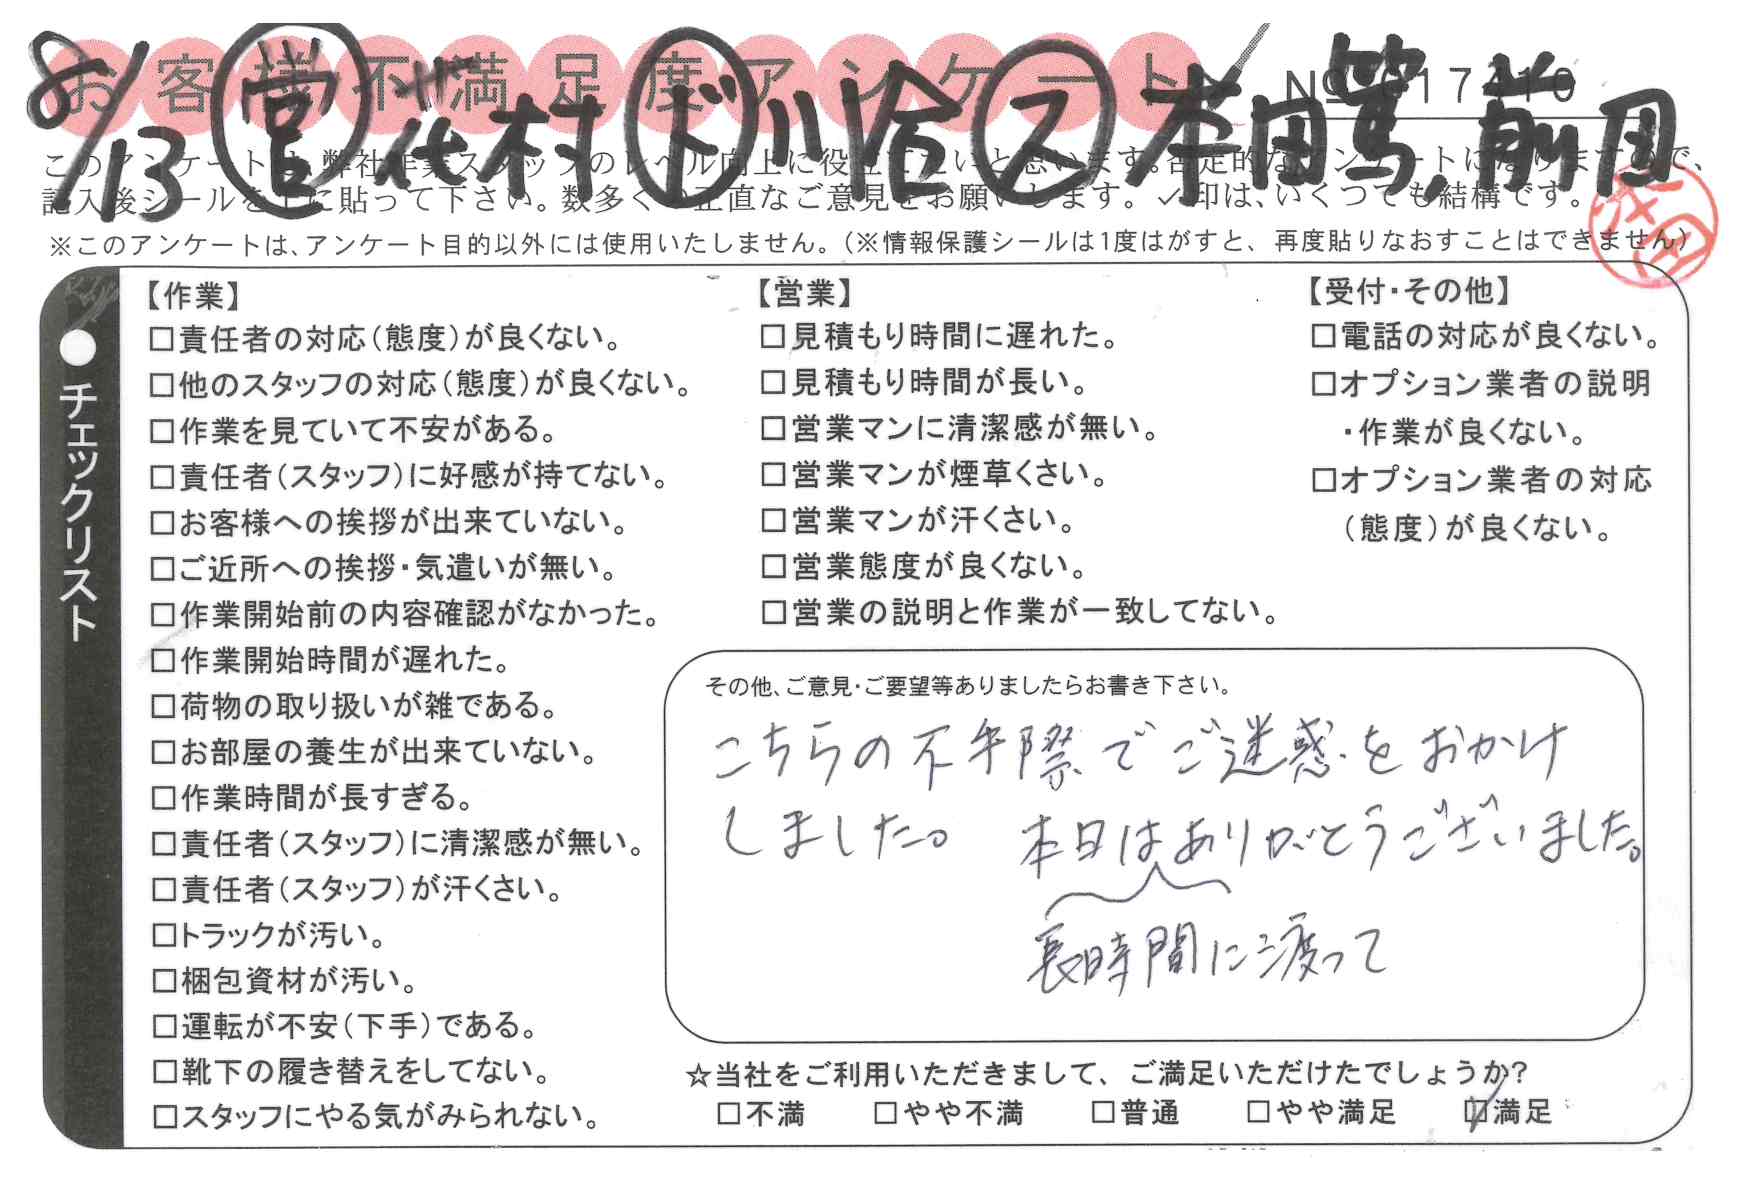 お客様不満足度アンケート
8/13 営 代村 ド 川合 ス 本田篤, 前田
このアンケートは、弊社作業スタッフのレベル向上に役立てたいと思います。否定的なアンケートになりますので、
記入後シールを上に貼って下さい。数多くの正直なご意見をお願いします。✓印は、いくつでも結構です。
※このアンケートは、アンケート目的以外には使用いたしません。(※情報保護シールは1度はがすと、再度貼りなおすことはできません)
●チェックリスト
【作業】
□責任者の対応(態度)が良くない。
□他のスタッフの対応(態度)が良くない。
□作業を見ていて不安がある。
□責任者(スタッフ)に好感が持てない。
□お客様への挨拶が出来ていない。
□ご近所への挨拶・気遣いが無い。
□作業開始前の内容確認がなかった。
□作業開始時間が遅れた。
□荷物の取り扱いが雑である。
□お部屋の養生が出来ていない。
□作業時間が長すぎる。
□責任者(スタッフ)に清潔感が無い。
□責任者(スタッフ)が汗くさい。
□トラックが汚い。
□梱包資材が汚い。
□運転が不安(下手)である。
□靴下の履き替えをしてない。
□スタッフにやる気がみられない。
【営業】
□見積もり時間に遅れた。
□見積もり時間が長い。
□営業マンに清潔感が無い。
□営業マンが煙草くさい。
□営業マンが汗くさい。
□営業態度が良くない。
□営業の説明と作業が一致してない。
【受付・その他】
□電話の対応が良くない。
□オプション業者の説明
・作業が良くない。
□オプション業者の対応
(態度)が良くない。
その他、ご意見・ご要望等ありましたらお書き下さい。
こちらの不手際でご迷惑をおかけ
しました。 本日はありがとうございました。
長時間に渡って
☆当社をご利用いただきまして、ご満足いただけたでしょうか?
□不満 □やや不満 □普通 □やや満足 ☑満足